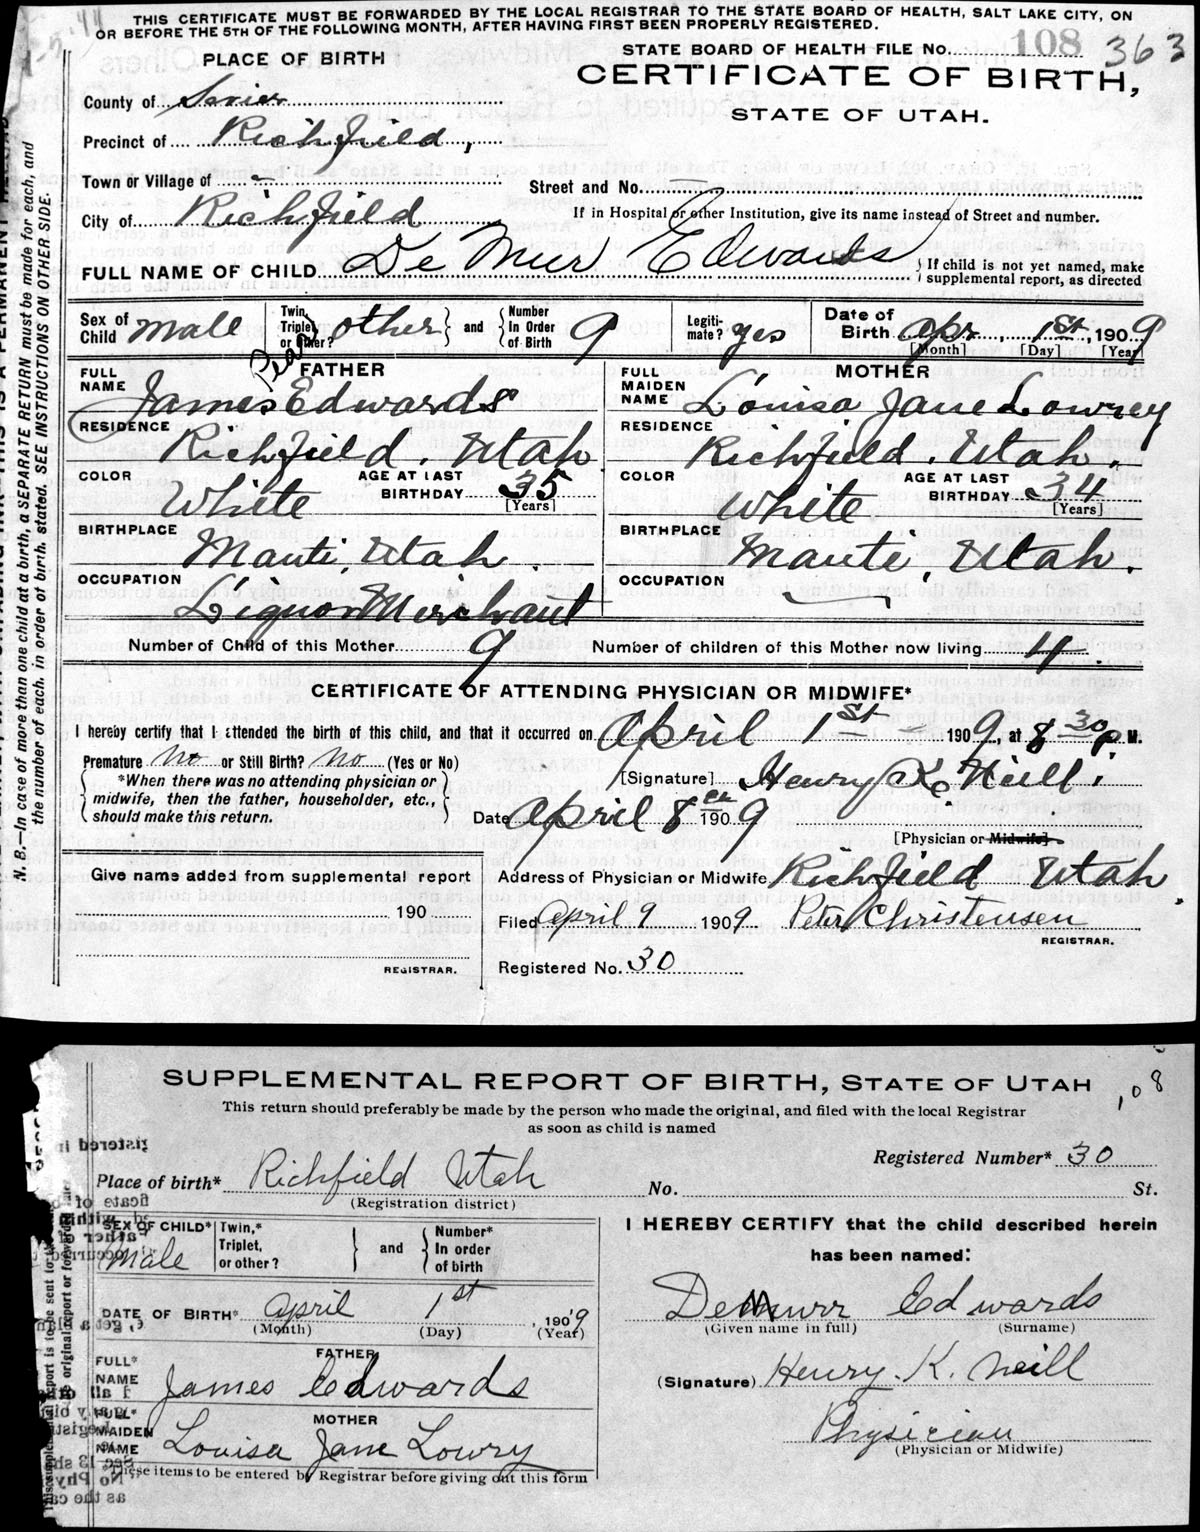 THIS CERTIFICATE MUST BE FORWARDED BY THE LOCAL REGISTRAR TO THE STATE BOARD OF HEALTH, SALT LAKE CITY, ON
OR BEFORE THE 5TH OF THE FOLLOWING MONTH, AFTER HAVING FIRST BEEN PROPERLY REGISTERED.
PLACE OF BIRTH
STATE BOARD OF HEALTH FILE No. 108 363
CERTIFICATE OF BIRTH,
STATE OF UTAH.
County of Sevier
Precinct of Richfield,
Town or Village of -
Street and No. —
City of Richfield
If in Hospital or other Institution, give its name instead of Street and number.
FULL NAME OF CHILD De Mur Edwards
If child is not yet named, make
supplemental report, as directed
Sex of Child male
Twin, Triplet, or other? other
and
Number In Order of Birth 9
Legitimate? yes
Date of Birth Apr. 1st, 1909
[Month] [Day] [Year]
FATHER
MOTHER
FULL NAME James Edwards
FULL MAIDEN NAME Louisa Jane Lowrey
RESIDENCE Richfield, Utah
RESIDENCE Richfield, Utah.
COLOR White
AGE AT LAST BIRTHDAY 35
[Years]
COLOR White
AGE AT LAST BIRTHDAY 34
[Years]
BIRTHPLACE Manti, Utah.
BIRTHPLACE Manti, Utah.
OCCUPATION Liquor Merchant
OCCUPATION
Number of Child of this Mother 9
Number of children of this Mother now living 4
CERTIFICATE OF ATTENDING PHYSICIAN OR MIDWIFE*
I hereby certify that I attended the birth of this child, and that it occurred on April 1st 1909, at 8 30 P M.
Premature No or Still Birth? No (Yes or No)
*When there was no attending physician or
midwife, then the father, householder, etc.,
should make this return.
[Signature] Henry K. Neill.
Date April 8 1909
[Physician or Midwife]
Give name added from supplemental report
190
REGISTRAR.
Address of Physician or Midwife Richfield Utah
Filed April 9 1909 Peter Christensen
REGISTRAR.
Registered No. 30
N. B.—In case of more than one child at a birth, a SEPARATE RETURN must be made for each, and
the number of each, in order of birth, stated. SEE INSTRUCTIONS ON OTHER SIDE.
SUPPLEMENTAL REPORT OF BIRTH, STATE OF UTAH
108
This return should preferably be made by the person who made the original, and filed with the local Registrar
as soon as child is named
Registered Number* 30
Place of birth* Richfield Utah
No. St.
(Registration district)
SEX OF CHILD* Male
Twin,* Triplet, or other?
and
Number* In order of birth
I HEREBY CERTIFY that the child described herein
has been named:
DATE OF BIRTH* April 1st, 1909
(Month) (Day) (Year)
DeMurr Edwards
(Given name in full) (Surname)
FATHER
FULL* NAME James Edwards
(Signature) Henry K. Neill
MOTHER
FULL* MAIDEN NAME Louisa Jane Lowry
Physician
(Physician or Midwife)
These items to be entered by Registrar before giving out this form